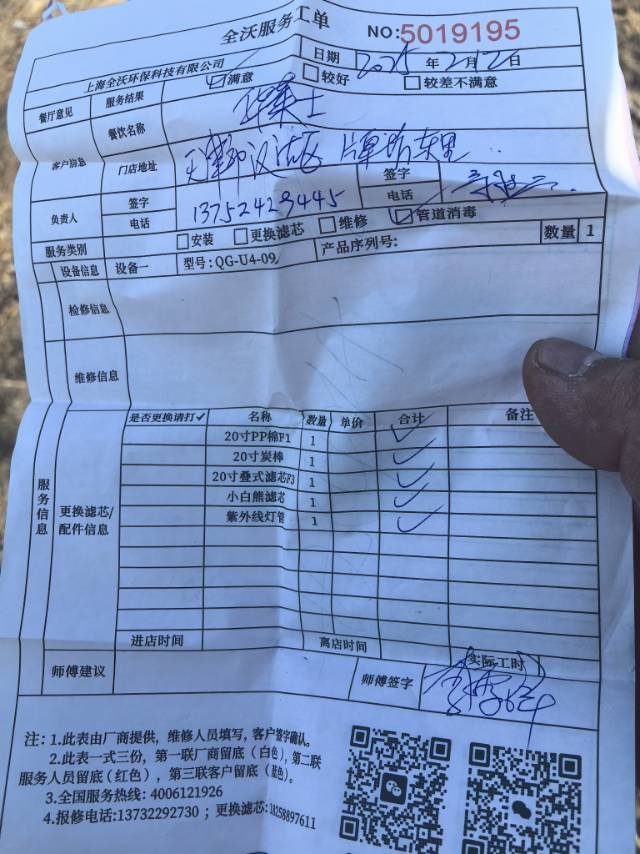 全沃服务工单 NO:5019195
上海全沃环保科技有限公司 日期 2025年2月12日
餐厅意见 服务结果 满意 较好 较差不满意
客户信息 餐饮名称 华莱士
门店地址 天津市汉沽区
负责人 签字 签字
电话 13752429445 电话
服务类别 安装 更换滤芯 维修 管道消毒 数量 1
设备信息 设备一 型号:QG-U4-09 产品序列号:
检修信息
维修信息
服务信息
更换滤芯/配件信息
是否更换请打✓ 名称 数量 单价 合计 备注
20寸PP棉F1 1 ✓
20寸炭棒 1 ✓
20寸叠式滤芯F3 1 ✓
小白熊滤芯 1 ✓
紫外线灯管 1 ✓
进店时间 离店时间 实际工时
师傅建议 师傅签字
注:1.此表由厂商提供,维修人员填写,客户签字确认。
2.此表一式三份,第一联厂商留底(白色),第二联
服务人员留底(红色),第三联客户留底(蓝色)。
3.全国服务热线:4006121926
4.报修电话:13732292730;更换滤芯:18258897611